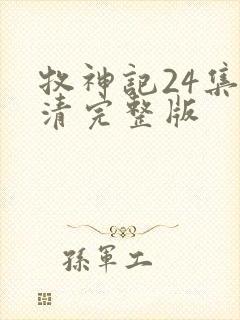 牧神記24集
清完整版
孫軍工